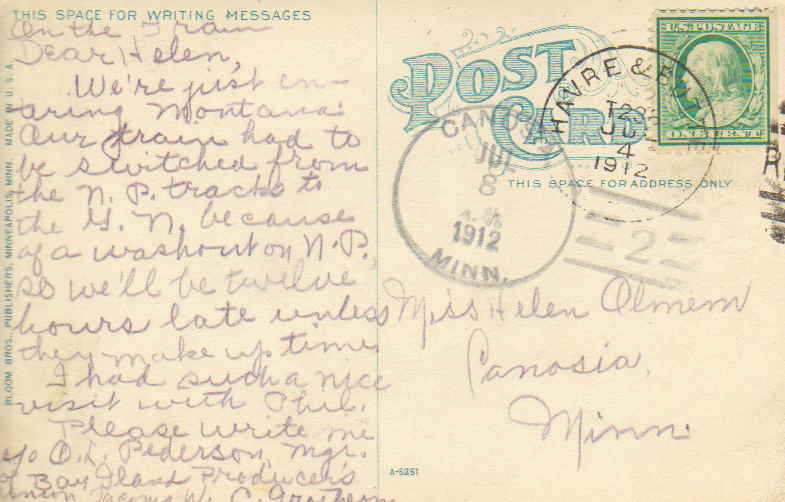 THIS SPACE FOR WRITING MESSAGES
On the Train
Dear Helen,
We're just en-
taring Montana.
Our train had to
be switched from
the N.P. tracks to
the G.N. because
of a washout on N.P.
so we'll be twelve
hours late unless
they make up time.
I had such a nice
visit with Phil.
Please write me
c/o O.L. Pederson, Mgr.
of Bay Island Producer's
Union Tacoma W. C.
BLOOM BROS., PUBLISHERS, MINNEAPOLIS, MINN. MADE IN U.S.A.
POST
CARD
THIS SPACE FOR ADDRESS ONLY
U.S. POSTAGE
ONE CENT
HAVRE &
JUL
4
1912
CANOSIA
JUL
8
A.M.
1912
MINN.
2
Miss Helen Olmem
Canosia,
Minn.
A-5251